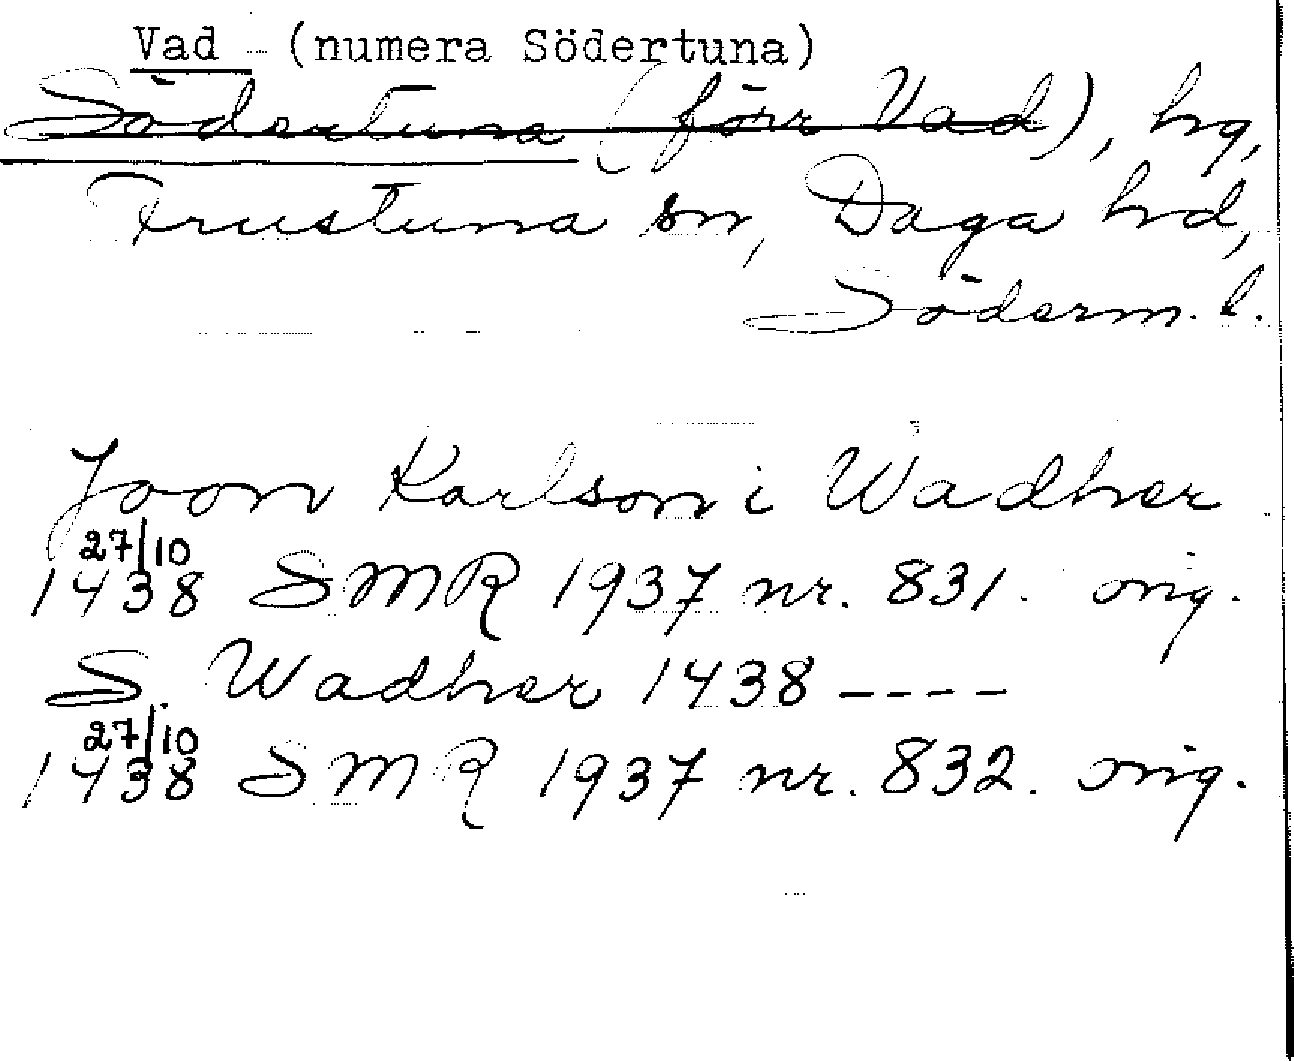 Vad (numera Södertuna)
Södertuna (förr Vad), hg,
Frustuna sn, Daga hd,
Söderm. l.
Joon Karlson i Wadher
27/10
1438 SMR 1937 nr. 831. orig.
S. Wadher 1438 ----
27/10
1438 SMR 1937 nr. 832. orig.